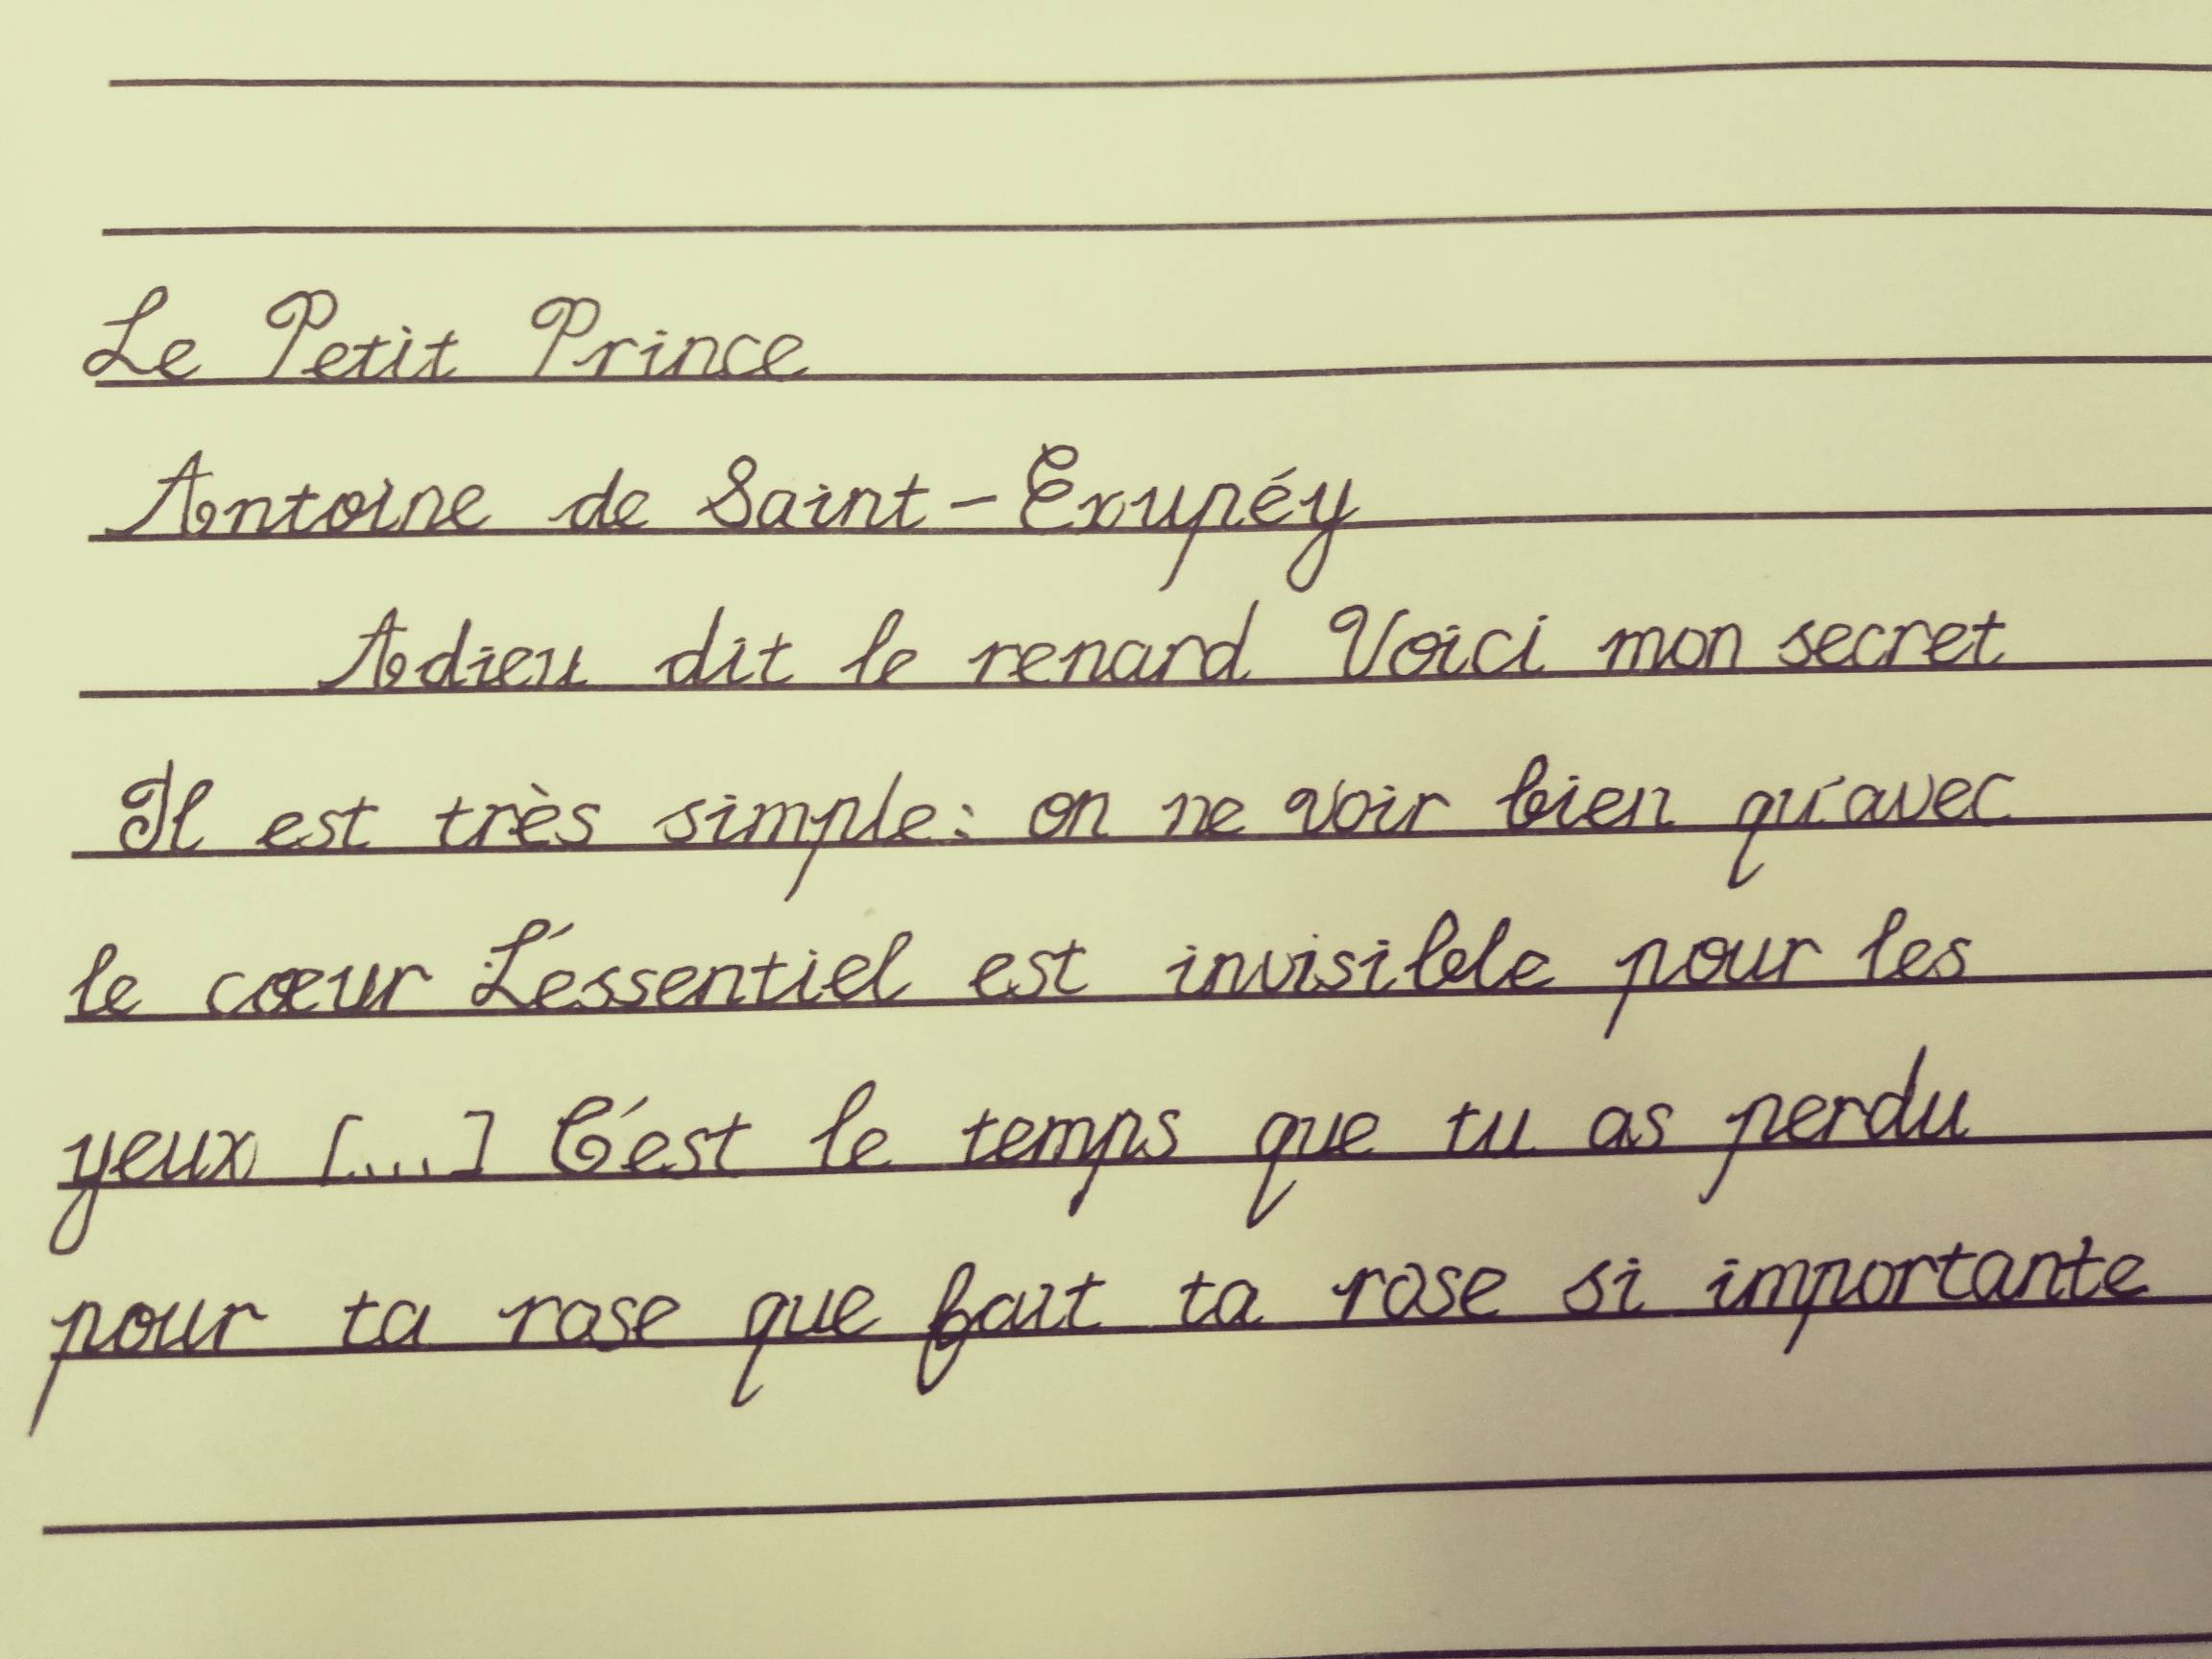 Le Petit Prince
Antoine de Saint-Exupéy
Adieu dit le renard Voici mon secret
Il est très simple: on ne voir bien qu'avec
le cœur L'essentiel est invisible pour les
yeux [...] C'est le temps que tu as perdu
pour ta rose que fait ta rose si importante